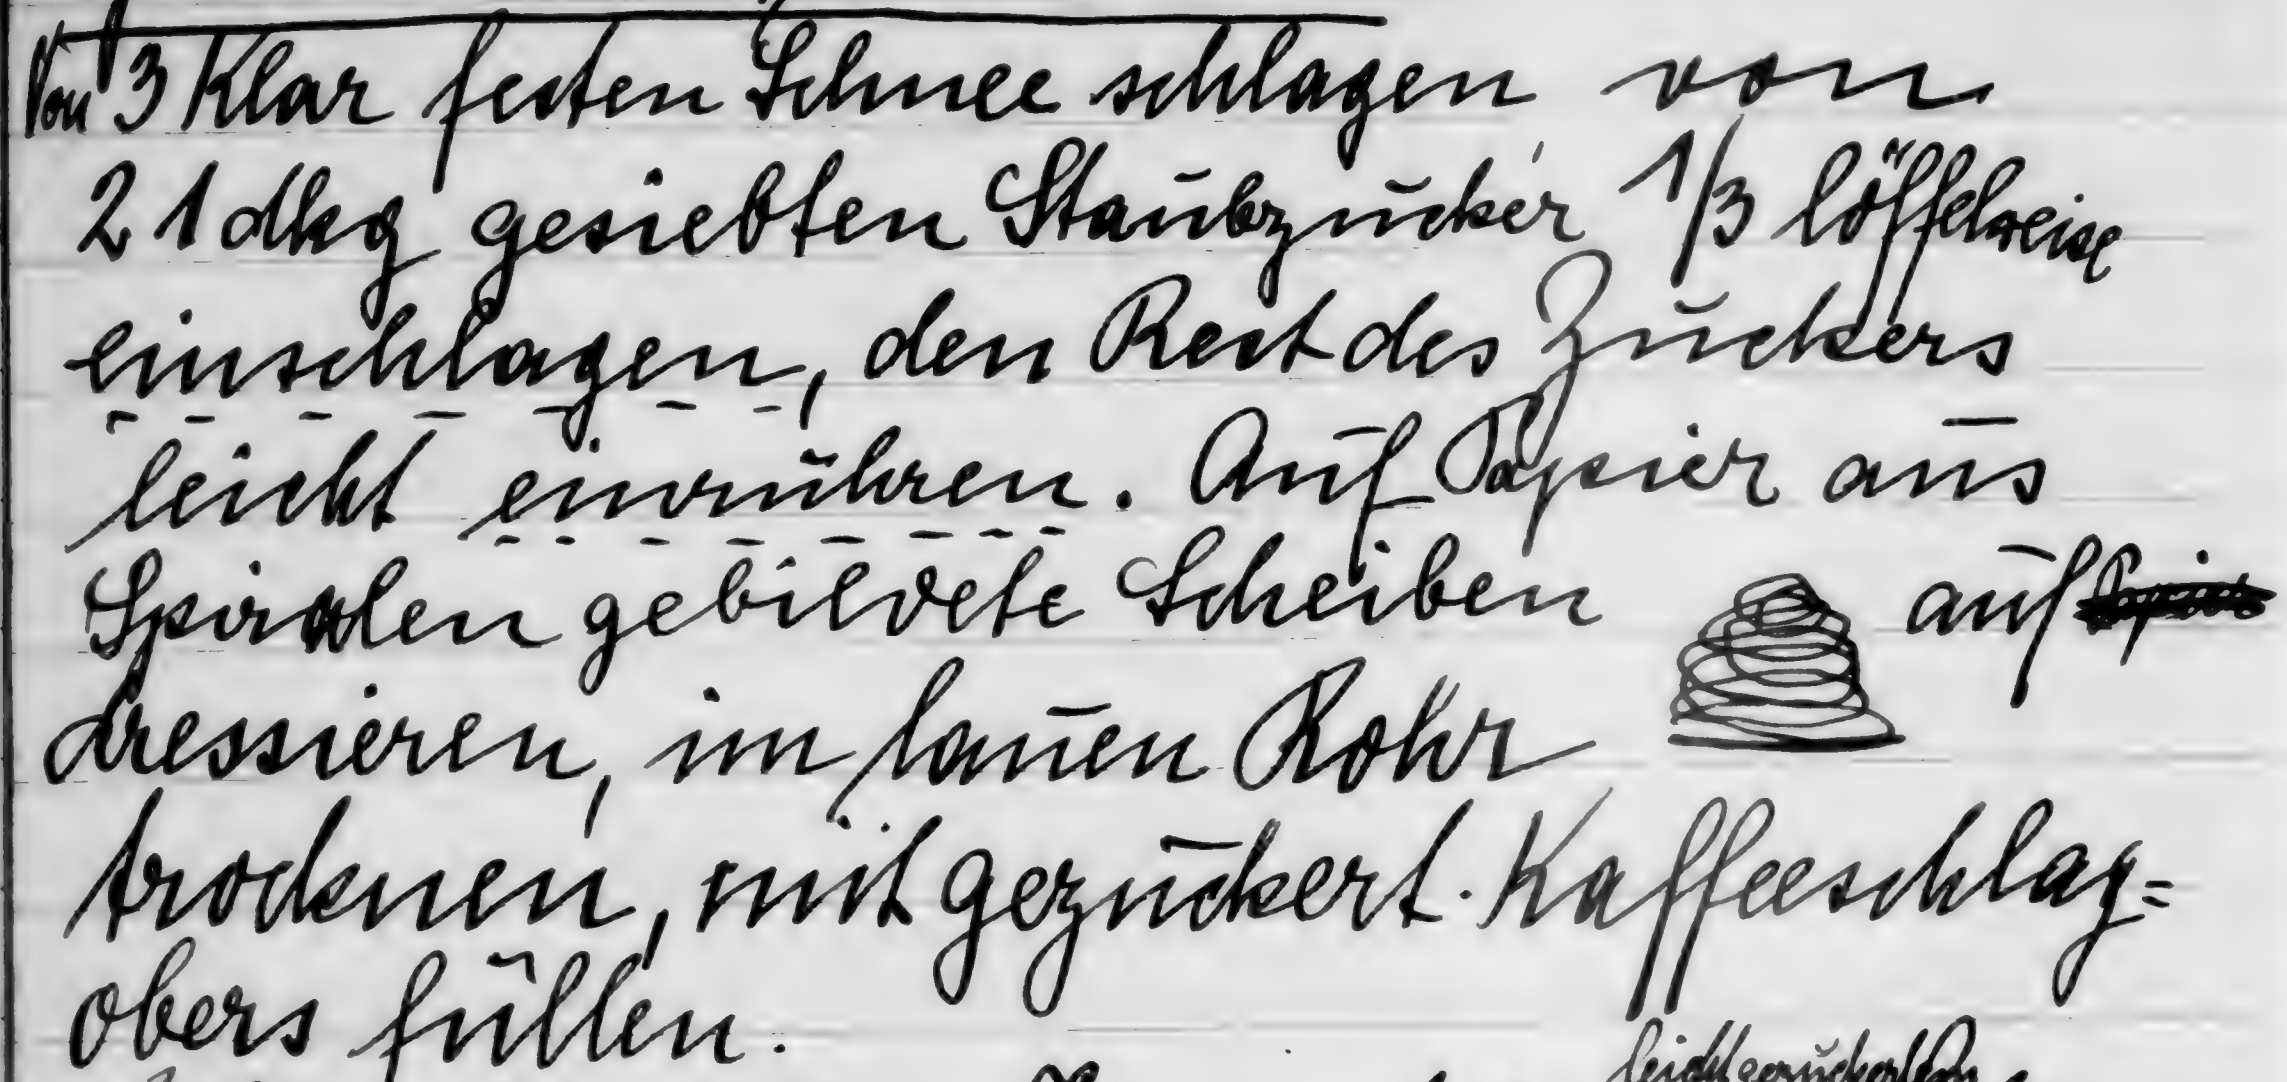 Von 3 Klar festen Schnee schlagen von
21 dkg gesiebten Staubzucker 1/3 löffelweise
einschlagen, den Rest des Zuckers
leicht einrühren. Auf Papier aus
Spiralen gebildete Scheiben auf Papier
dressieren, im lauen Rohr
trocknen, mit gezuckert. Kaffeeschlag=
obers füllen.
leicht gezuckert